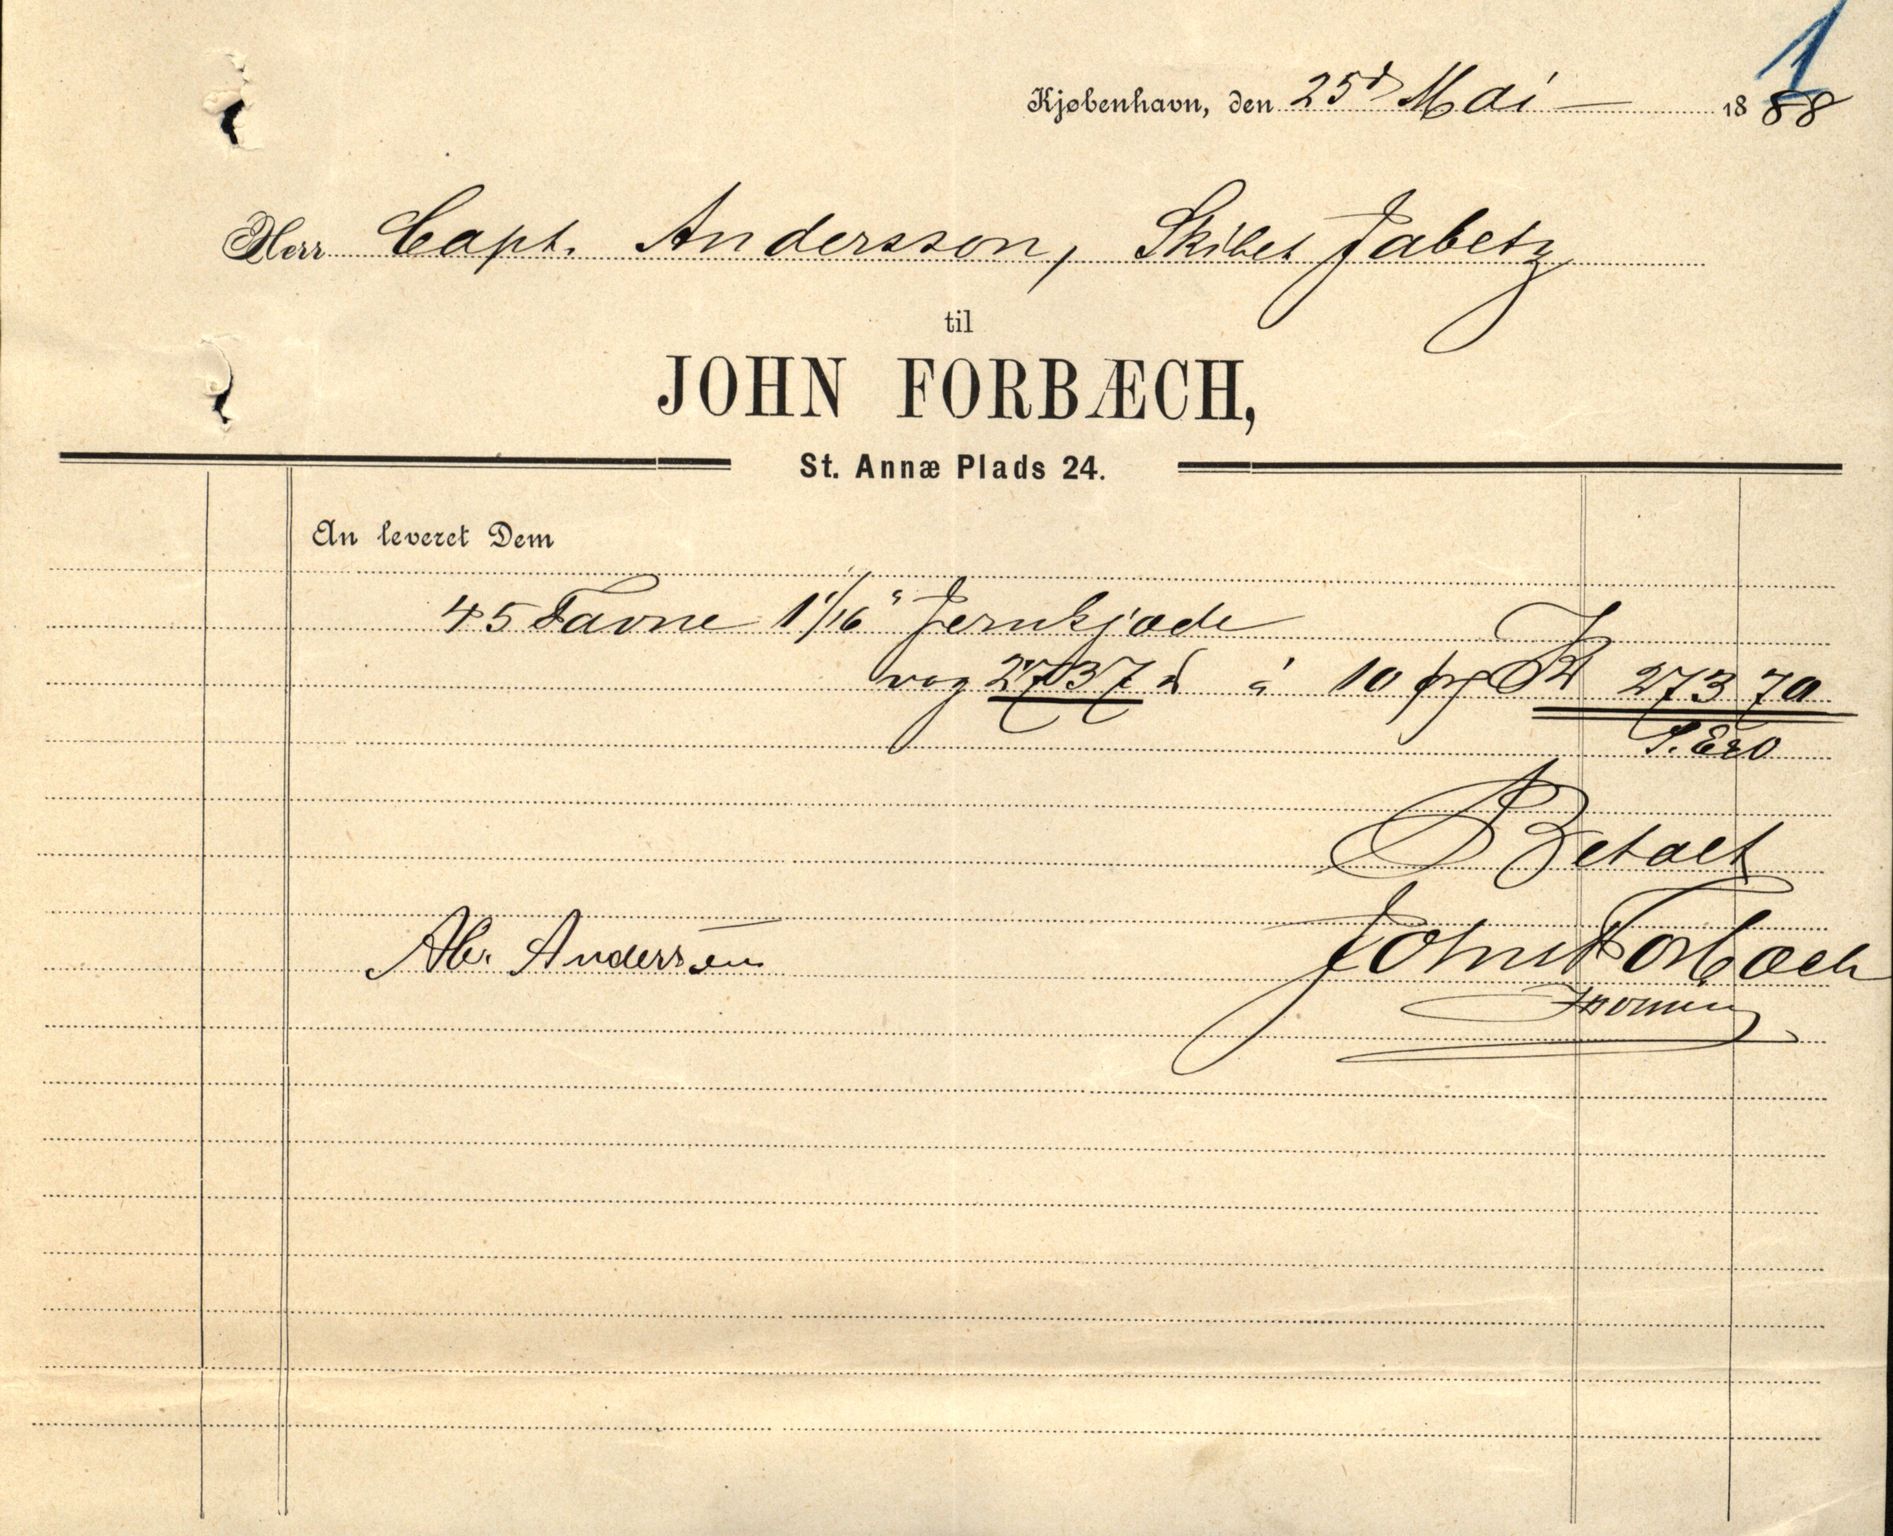 1
Kjøbenhavn, den 25d Mai 1888
Herr Capt. Andersson, Skibet Jabetz
til
JOHN FORBÆCH,
St. Annæ Plads 24.
An leveret Dem
45 Favne 1 1/16" Jernkjæde
vog 2737 ℔ á 10 Kr 273 70
S. E & O
Betalt
Abr. Andersson John Forbæch